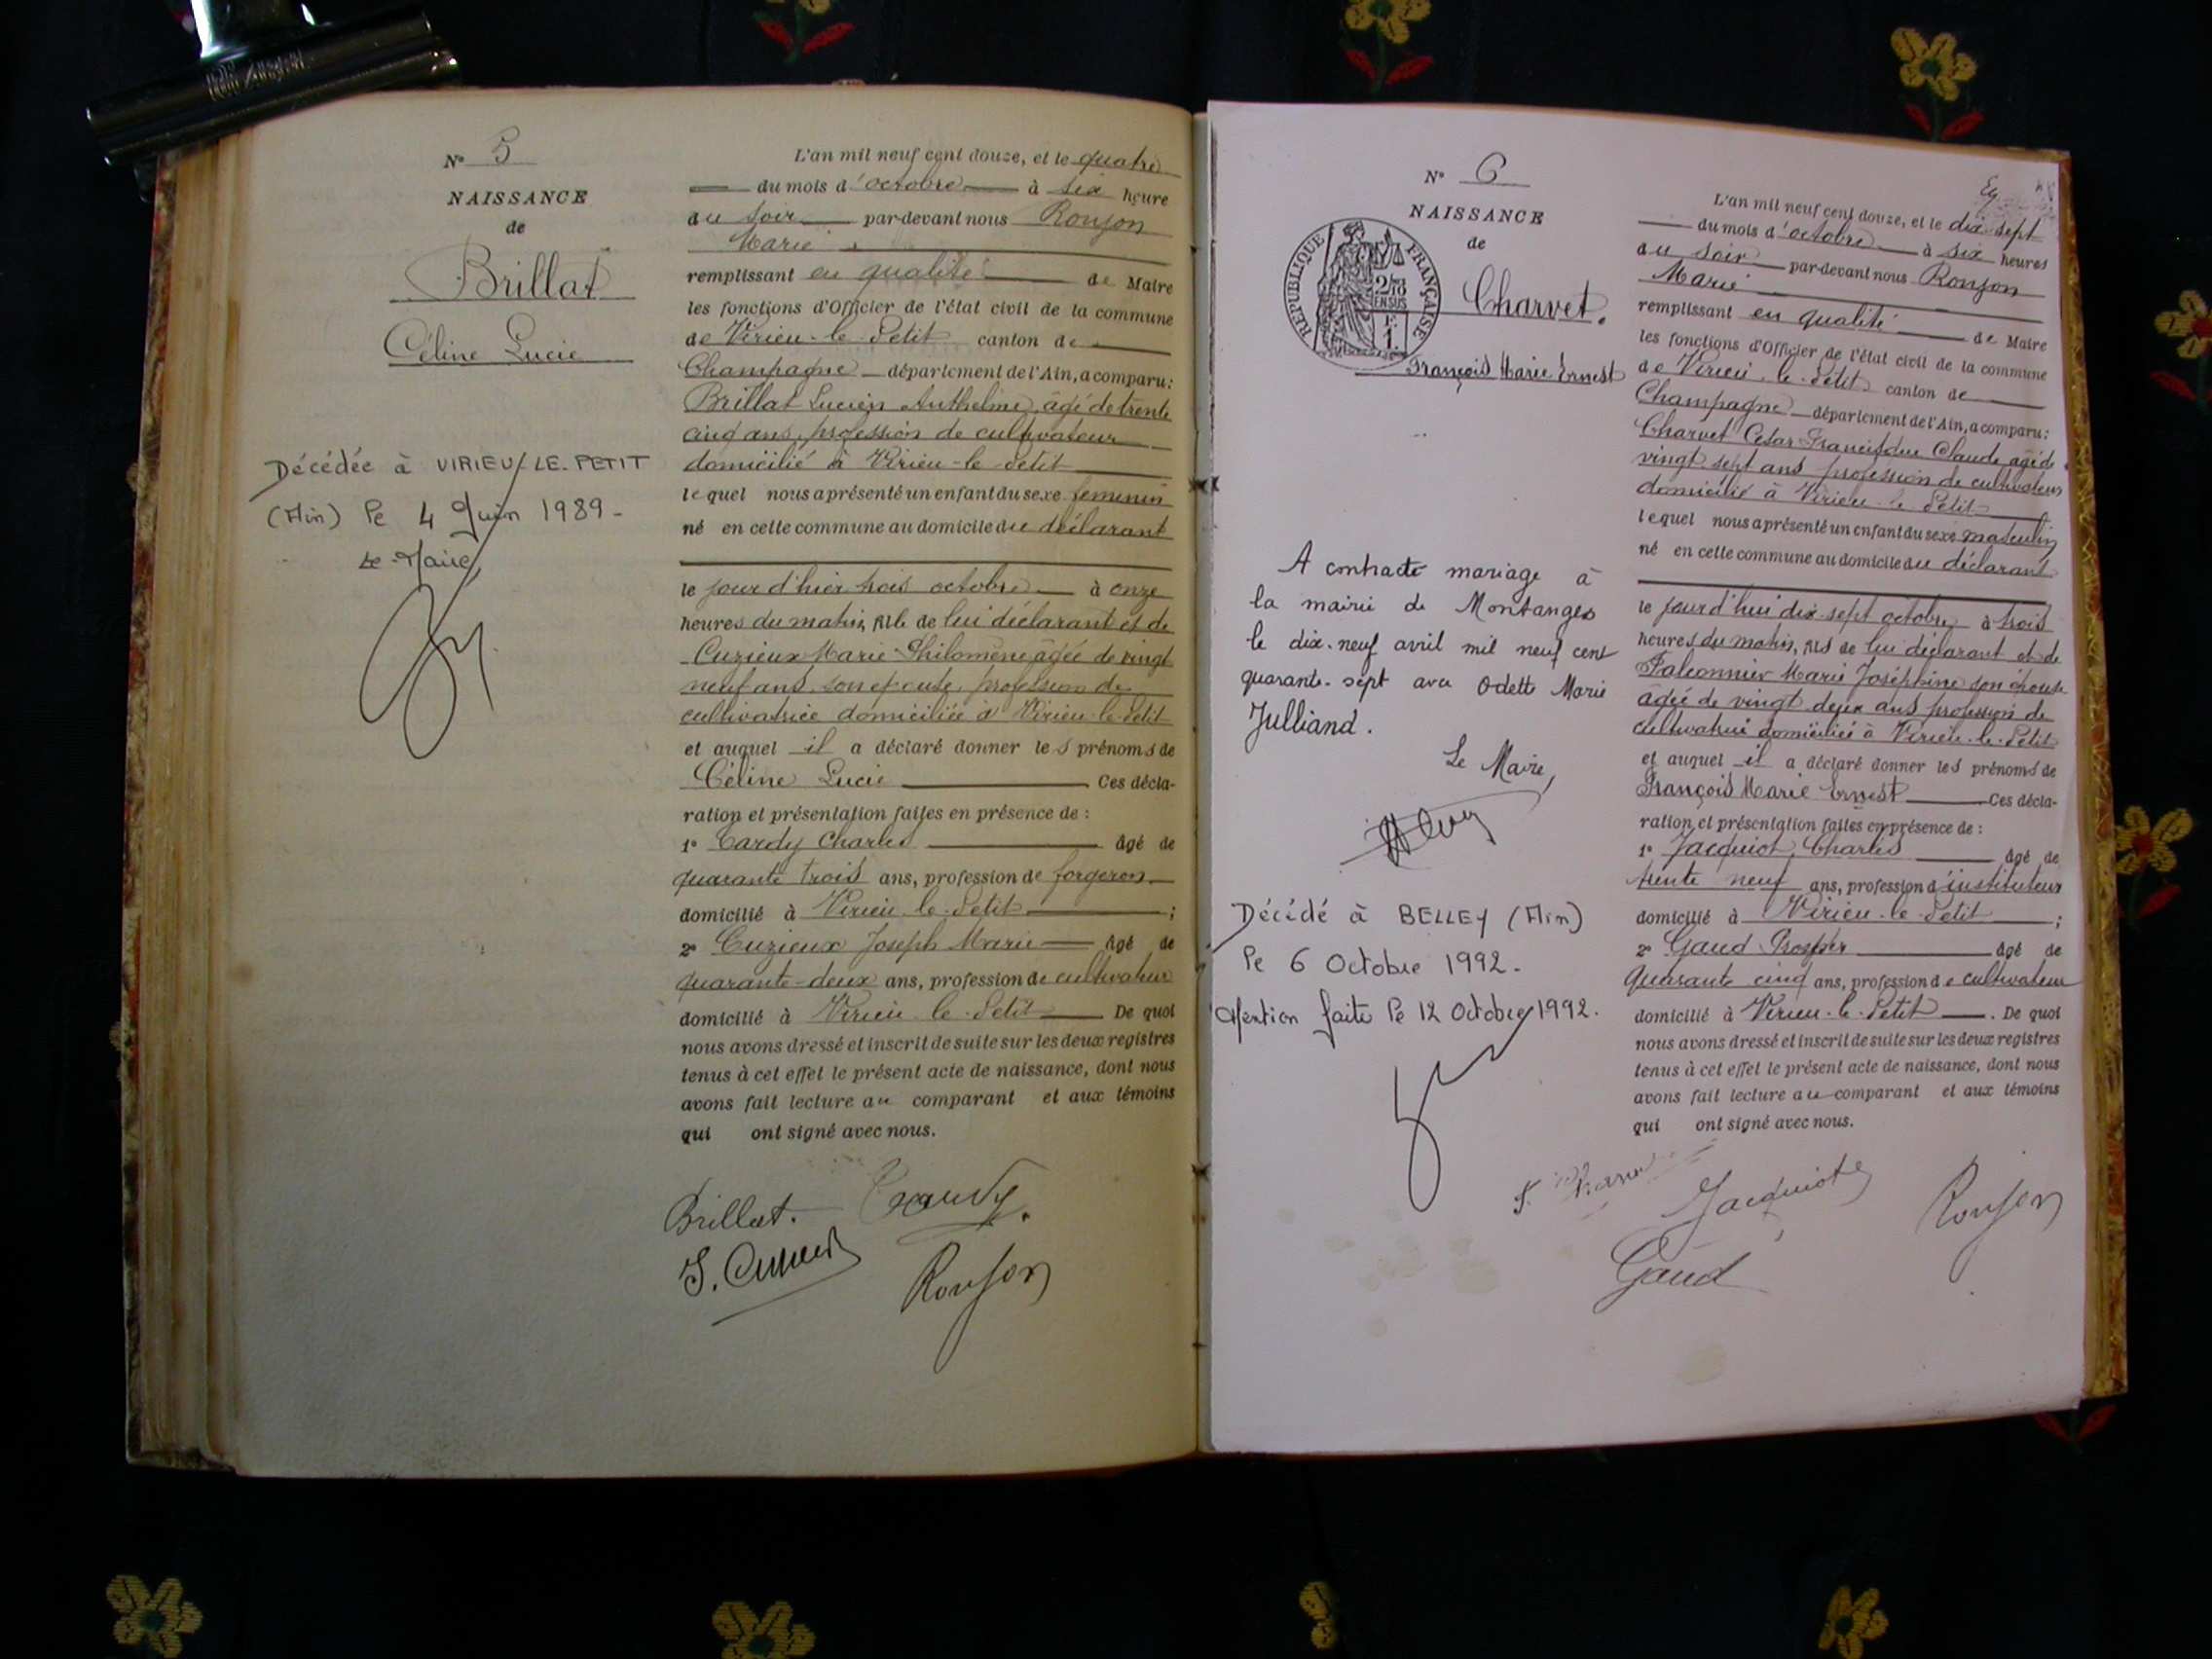 N° 5
NAISSANCE
de
Brillat
Céline Lucie
Décédée à VIRIEU-LE-PETIT
(Ain) le 4 Juin 1989-
Le Maire,
L'an mil neuf cent douze, et le quatre
du mois d'octobre à six heure
du soir par-devant nous Ronjon
Marie
remplissant en qualité de Maire
les fonctions d'Officier de l'état civil de la commune
de Virieu-le-Petit canton de
Champagne département de l'Ain, a comparu:
Brillat Lucien Anthelme, âgé de trente
cinq ans, profession de cultivateur
domicilié à Virieu-le-Petit
lequel nous a présenté un enfant du sexe féminin
né en cette commune au domicile du déclarant
le jour d'hier trois octobre à onze
heures du matin, fille de lui déclarant et de
Cuzieux Marie Philomène âgée de vingt
neuf ans, son épouse, profession de
cultivatrice domiciliée à Virieu-le-Petit
et auquel il a déclaré donner les prénoms de
Céline Lucie Ces décla-
ration et présentation faites en présence de :
1° Tardy Charles âgé de
quarante trois ans, profession de forgeron
domicilié à Virieu-le-Petit ;
2° Cuzieux Joseph Marie âgé de
quarante-deux ans, profession de cultivateur
domicilié à Virieu-le-Petit De quoi
nous avons dressé et inscrit de suite sur les deux registres
tenus à cet effet le présent acte de naissance, dont nous
avons fait lecture au comparant et aux témoins
qui ont signé avec nous.
Brillat.
Ronjon
N° 6
NAISSANCE
de
Charvet.
François Marie Ernest
RÉPUBLIQUE FRANÇAISE
2/10
EN SUS
F.
1.
A contracté mariage à
la mairie de Montanges
le dix-neuf avril mil neuf cent
quarante-sept avec Odette Marie
Julliand.
Le Maire,
Décédé à BELLEY (Ain)
le 6 Octobre 1992.
Mention faite le 12 Octobre 1992.
L'an mil neuf cent douze, et le dix-sept
du mois d'octobre à six heures
du soir par-devant nous Ronjon
Marie
remplissant en qualité de Maire
les fonctions d'Officier de l'état civil de la commune
de Virieu-le-Petit canton de
Champagne département de l'Ain, a comparu:
Charvet César Claude âgé de
vingt-sept ans profession de cultivateur
domicilié à Virieu-le-Petit
lequel nous a présenté un enfant du sexe masculin
né en cette commune au domicile du déclarant
le jourd'hui dix-sept octobre à trois
heures du matin, fils de lui déclarant et de
Falconnier Marie Joséphine son épouse
âgée de vingt deux ans profession de
cultivatrice domiciliée à Virieu-le-Petit
et auquel il a déclaré donner les prénoms de
François Marie Ernest Ces décla-
ration et présentation faites en présence de :
1° Jacquiot Charles âgé de
trente neuf ans, profession d'instituteur
domicilié à Virieu-le-Petit ;
2° Gaud Prosper âgé de
quarante cinq ans, profession de cultivateur
domicilié à Virieu-le-Petit . De quoi
nous avons dressé et inscrit de suite sur les deux registres
tenus à cet effet le présent acte de naissance, dont nous
avons fait lecture au comparant et aux témoins
qui ont signé avec nous.
Jacquiot
Ronjon
Gaud